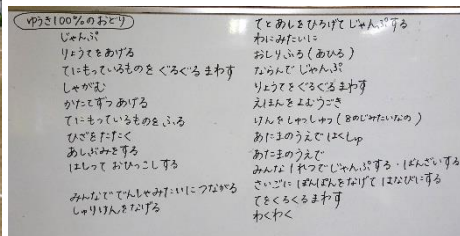 ゆうき100%のおどり
じゃんぷ
りょうてをあげる
てにもっているものを ぐるぐるまわす
しゃがむ
かたてずつ あげる
てにもっているものを ふる
ひざをたたく
あしぶみをする
はしって おひっこしする
みんなで でんしゃみたいにつながる
しゅりけんをなげる
てとあしをひろげて じゃんぷする
わにみたいに
おしりふる(あひる)
ならんで じゃんぷ
りょうてをぐるぐるまわす
えほんをよむうごき
けんをしゅっしゅっ(8のじみたいなの)
あたまのうえで はくしゅ
あたまのうえで
みんな1れつでじゃんぷする・ばんざいする
さいごに ぽんぽんをなげて はなびにする
てをくるくるまわす
わくわく